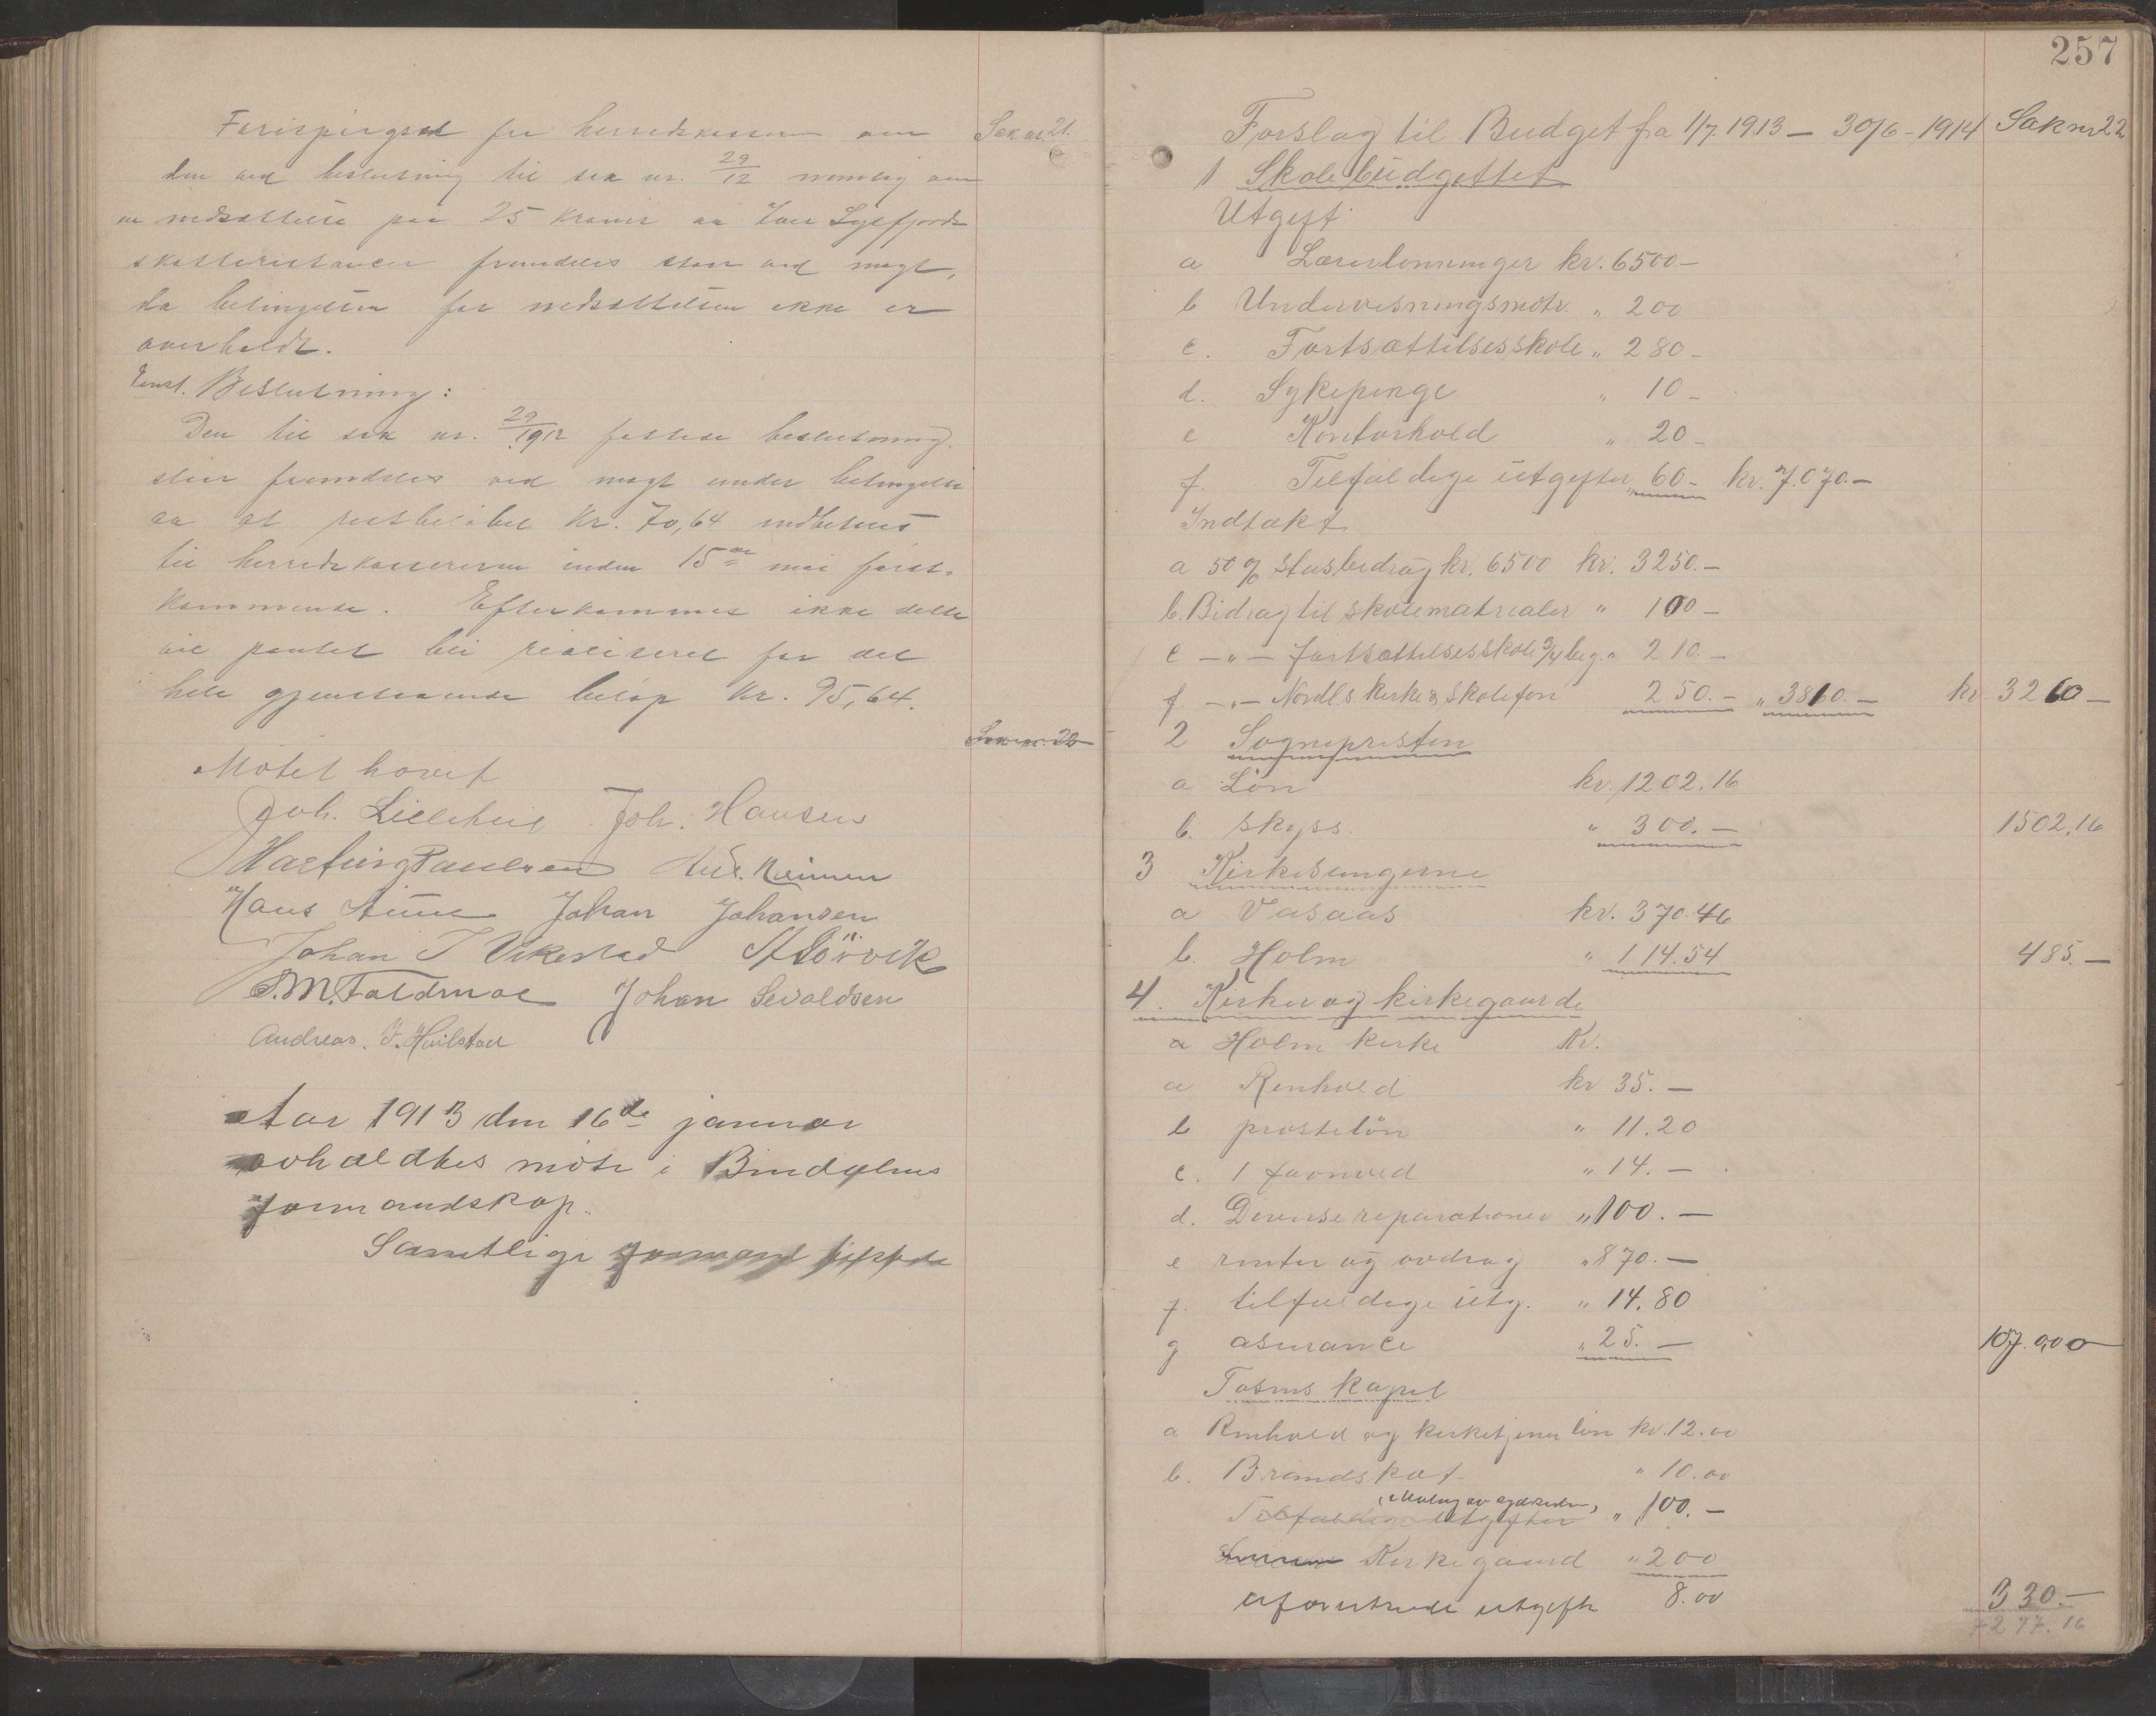 Forespørgsel fra herredskassereren om Sak nr. 21.
den ved beslutning til sak nr. 29/12 nemlig om
en nedsættelse paa 25 kroner av Iver Lysfjords
skatterestancer fremdeles staar ved magt,
da betingelsen for nedsættelsen ikke er
overholdt.
Enst. Beslutning:
Den til sak nr. 29/1912 fattede beslutning
staar fremdeles ved magt under betingelse
av at restbeløbet kr. 70,64 indbetales
til herredskassereren inden 15de mai først-
kommende. Efterkommes ikke dette
vil pantet bli realiseret for det
hele gjenstaaende beløp kr. 95,64.
Sak nr. 22
Møtet hævet
Joh. Lilleheil Joh. Hansen
Hartvig Paulsen
Hans Aune Johan Johansen
Johan J Vikestad
Johan Sevaldsen
Andreas. J. Heilstad
Aar 1913 den 16de januar
avholdtes møte i Bindalens
formandskap.
Samtlige formænd tilstede
257
Forslag til Budget fra 1/7. 1913 — 30/6 - 1914 Sak nr 22
1 Skolebudgettet
Utgift
a Lærerlønninger kr. 6500 -
b Undervisningsmatr. " 200
c. Fortsættelsesskole " 280 -
d. Sykepenge " 10 -
e Kontorhold " 20 -
f. Tilfældige utgifter " 60 - kr. 7.070. -
Indtækt
a 50 % Statsbidrag kr. 6500 kr. 3250. -
b. Bidrag til skolematrialer " 100 -
c - " - fortsættelsesskole 3/4 " 210. -
f. - " - Nordl.s kirke & skolefon 250. - " 3810. - kr 3260 -
2 Sognepresten
a Løn kr. 1202.16
b. skyss " 300. - 1502,16
3 Kirkesangerne
a Vasaas kr. 370.46
b. Holm " 114.54 485. -
4. Kirker og kirkegaarde
a Holm kirke Kr.
a Renhold kr 35. -
b presteløn " 11.20
c. 1 favnved " 14. -
d. Diverse reparationer " 100. -
e renter og avdrag " 870. -
f. tilfældige utg. " 14.80
g asurance " 25. - 107.0,00
Tosens kapel
a Renhold og kirketjener løn kr. 12.00
b. Brandskat " 10.00
Tilfældige utgifter " 100. -
Kirkegaard " 200
uforutsede utgifter 8.00 330. -
7277.16